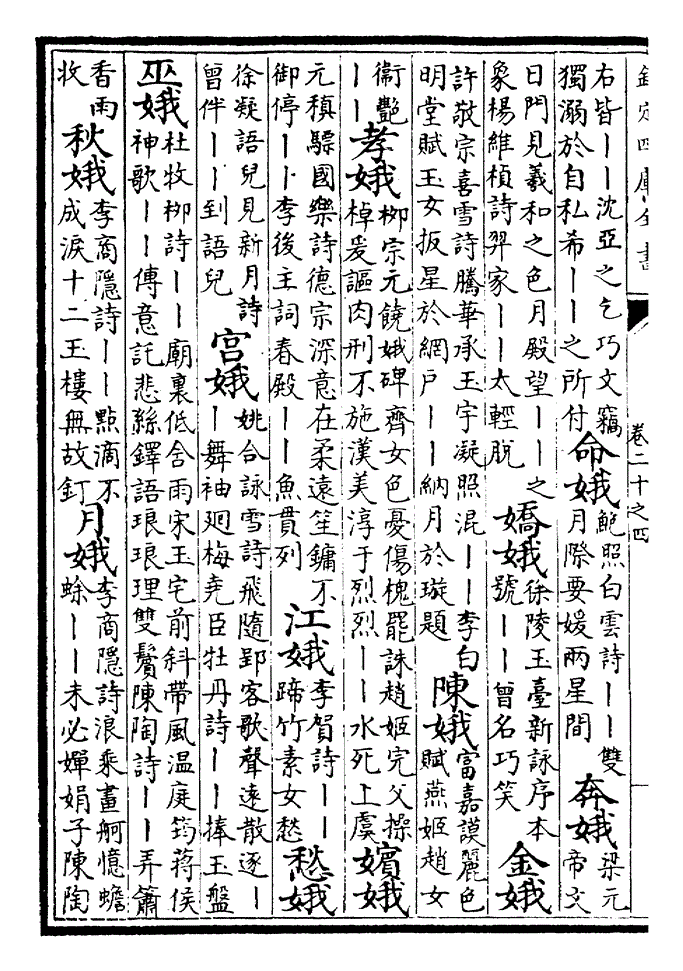 欽定四庫全書 卷二十之四
右皆丨丨沈亞之乞巧文竊
獨溺於自私希丨丨之所付
命娥
鮑照白雲詩丨丨雙
月際要媛兩星間
奔娥
梁元
帝文
日門見羲和之色月殿望丨丨之
象楊維楨詩羿家丨丨太輕脫
嬌娥
徐陵玉臺新詠序本
號丨丨曾名巧笑
金娥
許敬宗喜雪詩騰華承玉宇凝照混丨丨李白
明堂賦玉女扳星於網戸丨丨納月於璇題
陳娥
富嘉謨麗色
賦燕姬趙女
衞艷
丨丨
孝娥
柳宗元饒娥碑齊女色憂傷槐罷誅趙姬完父操
棹爰謳肉刑不施漢美淳于烈烈丨丨水死上虞
嬪娥
元稹驃國樂詩德宗深意在柔遠笙鏞不
御停丨丨李後主詞春殿丨丨魚貫列
江娥
李賀詩丨丨
蹄竹素女愁
愁娥
徐凝語兒見新月詩
曾伴丨丨到語兒
宮娥
姚合詠雪詩飛隨郢客歌聲遠散逐丨
丨舞袖廻梅堯臣牡丹詩丨丨捧玉盤
巫娥
杜牧柳詩丨丨廟裏低含雨宋玉宅前斜帶風温庭筠蔣侯
神歌丨丨傳意託悲絲鐸語琅琅理雙鬢陳陶詩丨丨弄簫
香雨
收
秋娥
李商隱詩丨丨點滴不
成淚十二玉樓無故釘
月娥
李商隱詩浪乘畫舸憶蟾
蜍丨丨未必嬋娟子陳陶